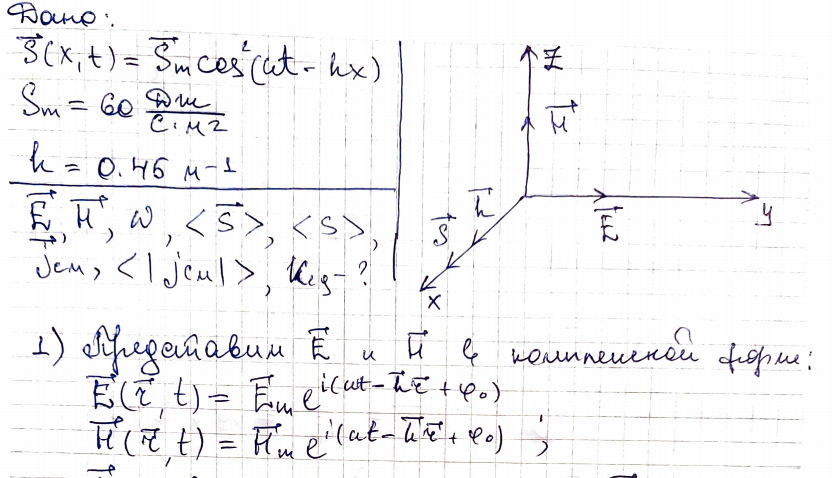 Дано:
S⃗(x,t) = S⃗m cos²(ωt - kx)
Sm = 60 Дж/с·м²
k = 0.46 м⁻¹
E⃗, H⃗, ω, <S⃗>, <S>,
j⃗см, <|j⃗см|>, Kед - ?
z
H⃗
k⃗
S⃗
E⃗
y
x
1) Представим E⃗ и H⃗ в комплексной форме:
E⃗(r⃗,t) = E⃗m e^i(ωt-k⃗r⃗+φ₀)
H⃗(r⃗,t) = H⃗m e^i(ωt-k⃗r⃗+φ₀) ;